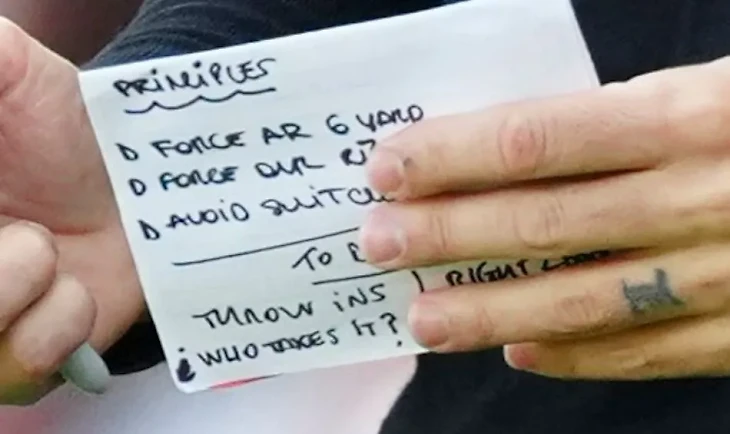 PRINCIPLES
D FORCE AR 6 YARD
D FORCE OUR
D AVOID SWITCH
TO
THROW INS | RIGHT
¿WHO TAKES IT?